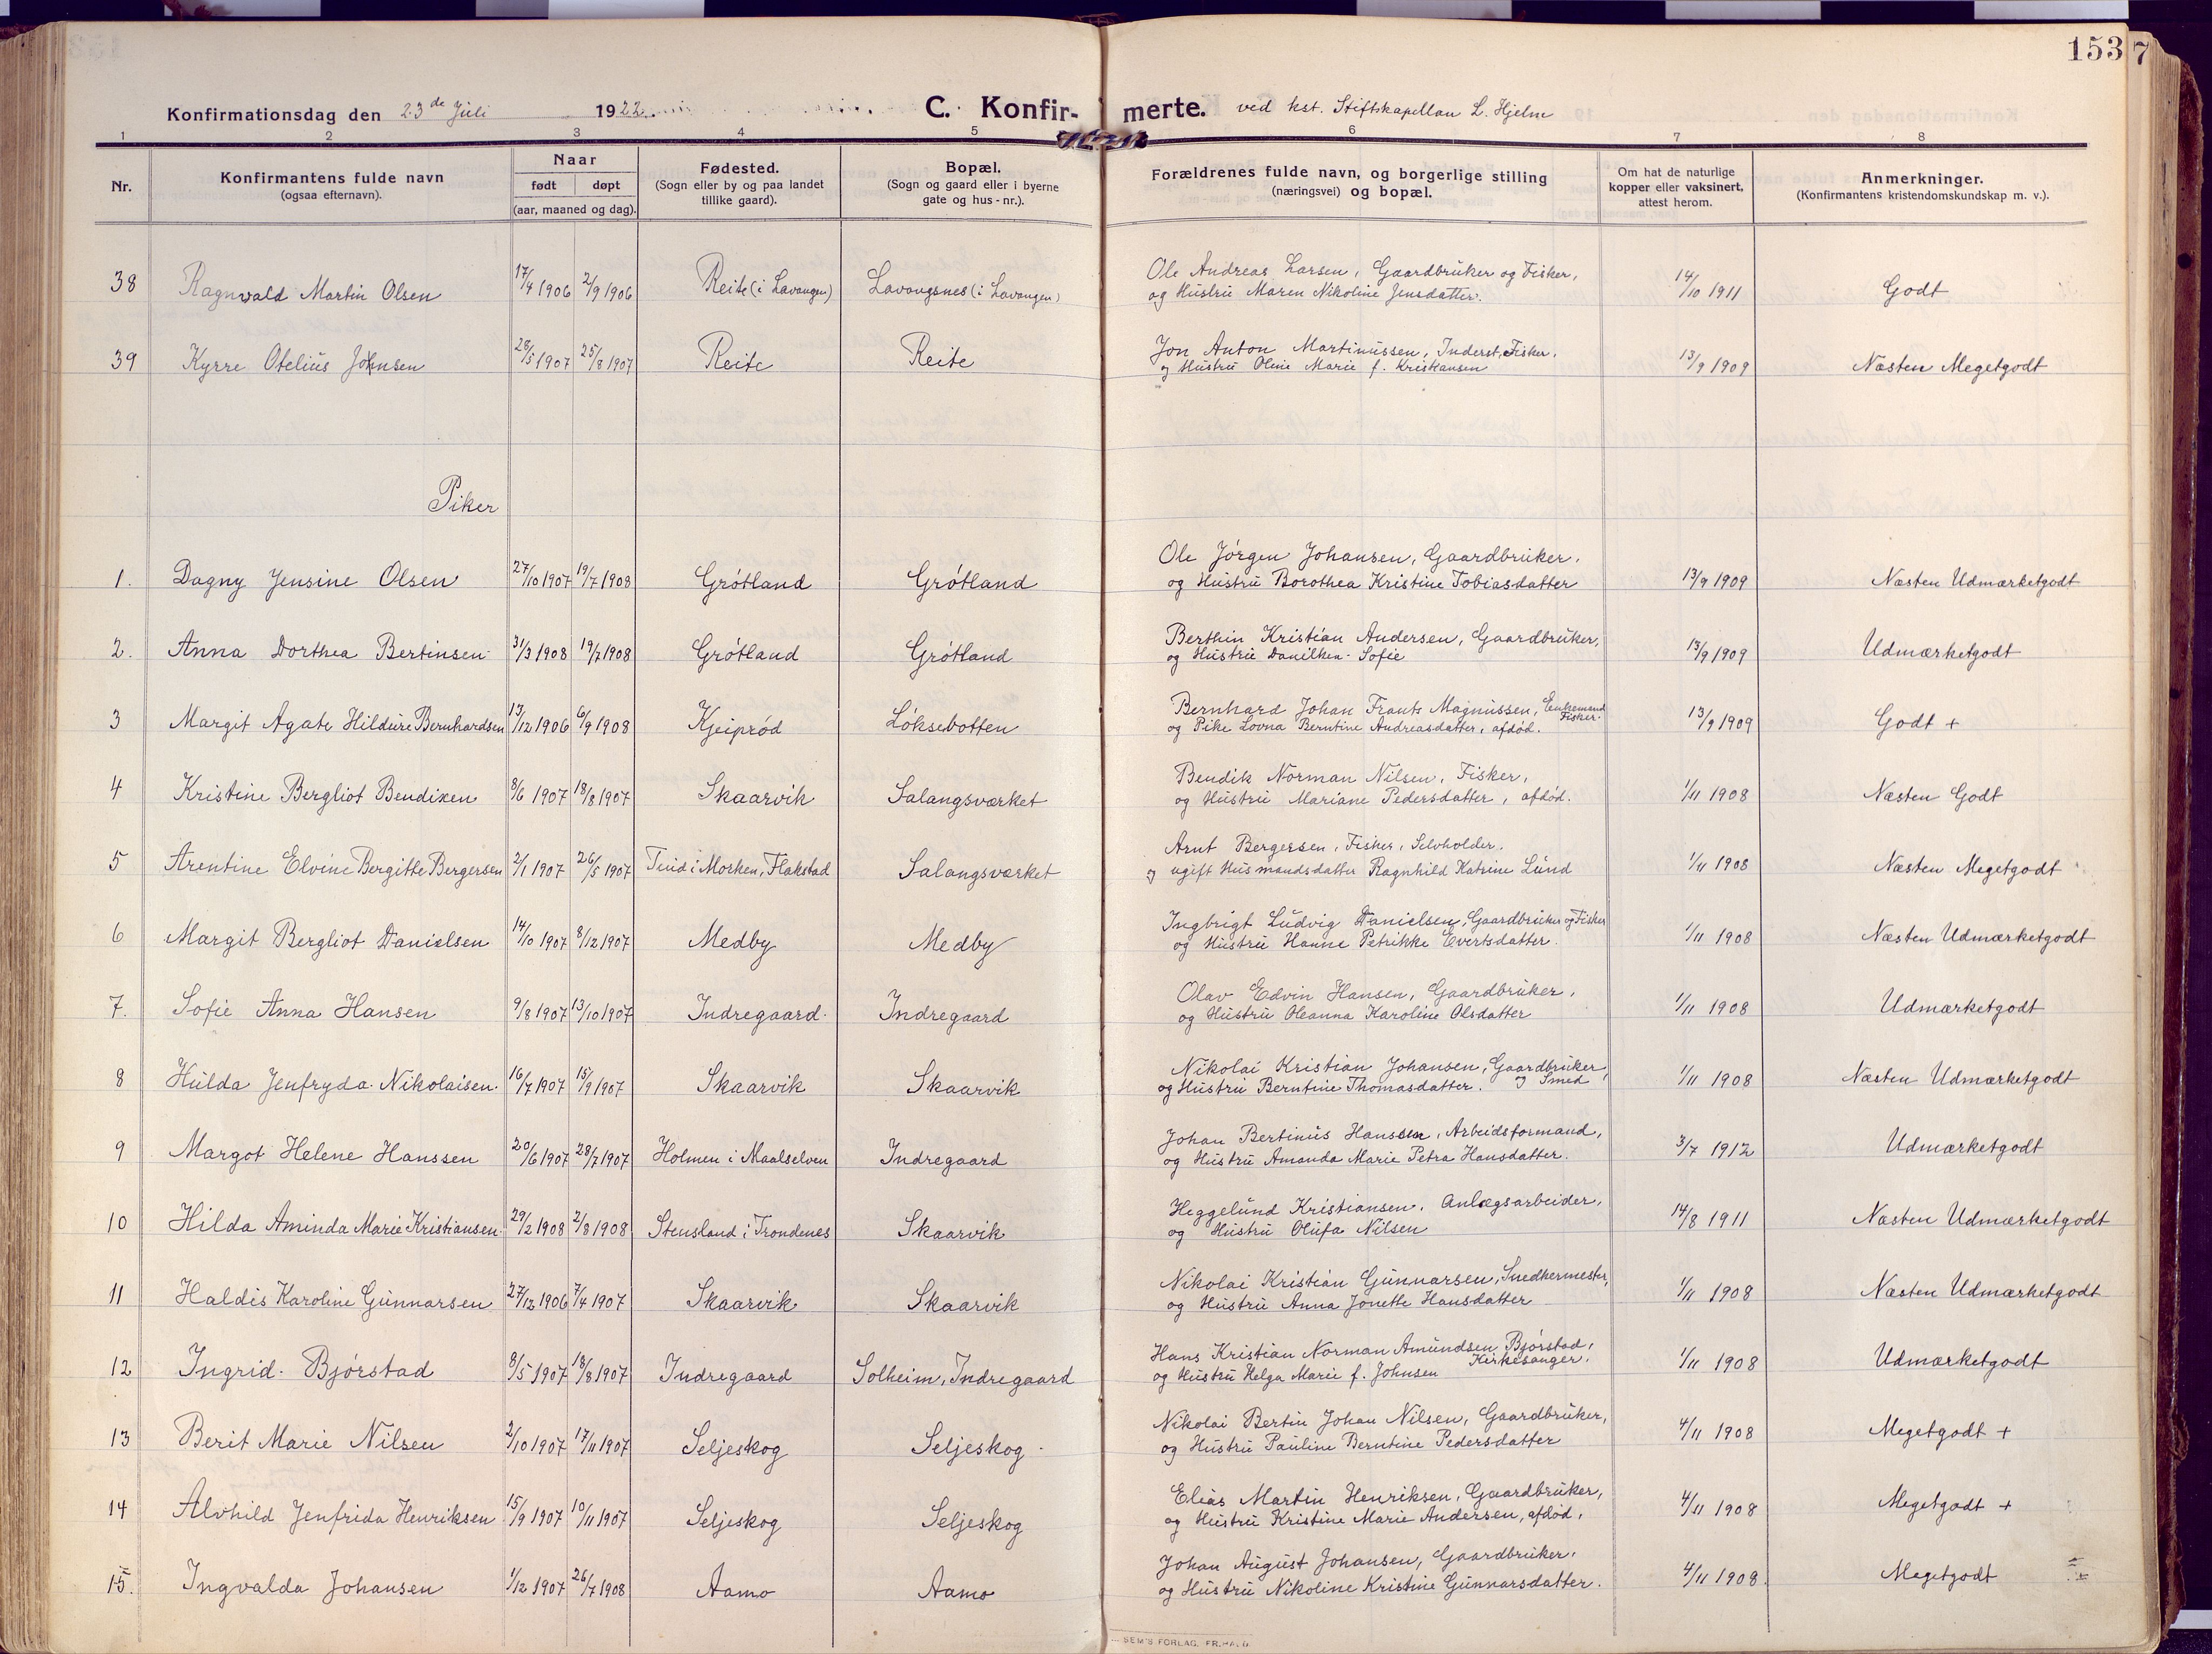 153
7
Konfirmationsdag den 23de Juli 1922. C. Konfir- merte. ved kst. Stiftskapellan L. Hjelm
1 2 3 4 5 6 7 8
Nr.
Konfirmantens fulde navn
(ogsaa efternavn).
Naar
født døpt
(aar, maaned og dag).
Fødested.
(Sogn eller by og paa landet
tillike gaard).
Bopæl.
(Sogn og gaard eller i byerne
gate og hus-nr.).
Forældrenes fulde navn, og borgerlige stilling
(næringsvei) og bopæl.
Om hat de naturlige
kopper eller vaksinert,
attest herom.
Anmerkninger.
(Konfirmantens kristendomskundskap m. v.).
38 Ragnvald Martin Olsen 17/4 1906 2/9 1906 Reite (i Lavangen) Lavangsnes (i Lavangen) Ole Andreas Larsen, Gaardbruker og Fisker, 14/10 1911 Godt
og Hustru Maren Nikoline Jensdatter.
39 Kyrre Otelius Johnsen 28/5 1907 25/8 1907 Reite Reite Jon Anton Martinussen, Inderst, Fisker. 13/9 1909 Næsten Megetgodt
og Hustru Oline Marie f. Kristiansen
Piker
1. Dagny Jensine Olsen 27/10 1907 19/7 1908 Grótland Grótland Ole Jórgen Johansen, Gaardbruker. 13/9 1909 Næsten Udmærketgodt
og Hustru Borothea Kristine Tobiasdatter
2. Anna Dorthea Bertinsen 31/3 1908 19/7 1908 Grótland Grótland Berthin Kristian Andersen, Gaardbruker, 13/9 1909 Udmærketgodt
og Hustru Danilken Sofie
3 Margit Agate Hildure Bernhardsen 13/12 1906 6/9 1908 Kjeipród Lóksebotten Bernhard Johan Frants Magnussen, Enkemand Fisker. 13/9 1909 Godt +
og Pike Lovna Berntine Andreasdatter, afdód.
4 Kristine Bergliot Bendiken 8/6 1907 18/8 1907 Skaarvik Salangsværket Bendik Norman Nilsen, Fisker, 1/11 1908 Næsten Godt
og Hustru Mariane Pedersdatter, afdód.
5 Arentine Elvine Bergitte Bergersen 2/1 1907 26/5 1907 Tuid i Morken, Flakstad Salangsværket Arnt Bergersen, Fisker, Selvholder. 1/11 1908 Næsten Megetgodt
og ugift Husmandsdatter Ragnhild Katrine Lund
6 Margit Bergliot Danielsen 14/10 1907 8/12 1907 Medby Medby Ingbrigt Ludvig Danielsen, Gaardbruker og Fisker 1/11 1908 Næsten Udmærketgodt
og Hustru Hanne Petrikke Evertsdatter.
7. Sofie Anna Hansen 9/8 1907 13/10 1907 Indregaard Indregaard Olav Edvin Hansen, Gaardbruker, 1/11 1908 Udmærketgodt
og Hustru Oleanna Karoline Olsdatter
8 Hulda Jenfryda Nikolaisen 16/7 1907 15/9 1907 Skaarvik Skaarvik Nikolai Kristian Johansen, Gaardbruker, og Smed 1/11 1908 Næsten Udmærketgodt
og Hustru Berntine Thomasdatter.
9 Margot Helene Hanssen 20/6 1907 28/7 1907 Holmen i Maalselven Indregaard Johan Bertinus Hanssen, Arbeidsformand, 3/7 1912 Udmærketgodt
og Hustru Amanda Marie Petra Hansdatter.
10 Hilda Aminda Marie Kristiansen 29/2 1908 2/8 1908 Stensland i Trondenes Skaarvik Heggelund Kristiansen, Anlægsarbeider, 14/8 1911 Næsten Udmærketgodt
og Hustru Olufa Nilsen
11 Haldis Karoline Gunnarsen 27/12 1906 7/4 1907 Skaarvik Skaarvik Nikolai Kristian Gunnarsen, Snedkermester, 1/11 1908 Næsten Udmærketgodt
og Hustru Anna Jonette Hansdatter
12 Ingrid Bjórstad 8/5 1907 18/8 1907 Indregaard Solheim, Indregaard Hans Kristian Norman Amundsen Bjórstad, Kirkesanger. 1/11 1908 Udmærketgodt
og Hustru Helga Marie f. Johnsen
13 Berit Marie Nilsen 2/10 1907 17/11 1907 Seljeskog Seljeskog Nikolai Bertin Johan Nilsen, Gaardbruker, 4/11 1908 Megetgodt +
og Hustru Pauline Berntine Pedersdatter
14 Alvhild Jenfrida Henriksen 15/9 1907 10/11 1907 Seljeskog Seljeskog Elias Martin Henriksen, Gaardbruker, 4/11 1908 Megetgodt +
og Hustru Kristine Marie Andersen, afdód.
15. Ingvalda Johansen 1/12 1907 26/7 1908 Aamo Aamo Johan August Johansen, Gaardbruker. 4/11 1908. Megetgodt
og Hustru Nikoline Kristine Gunnarsdatter.
SEM'S FORLAG, FR.HALD.